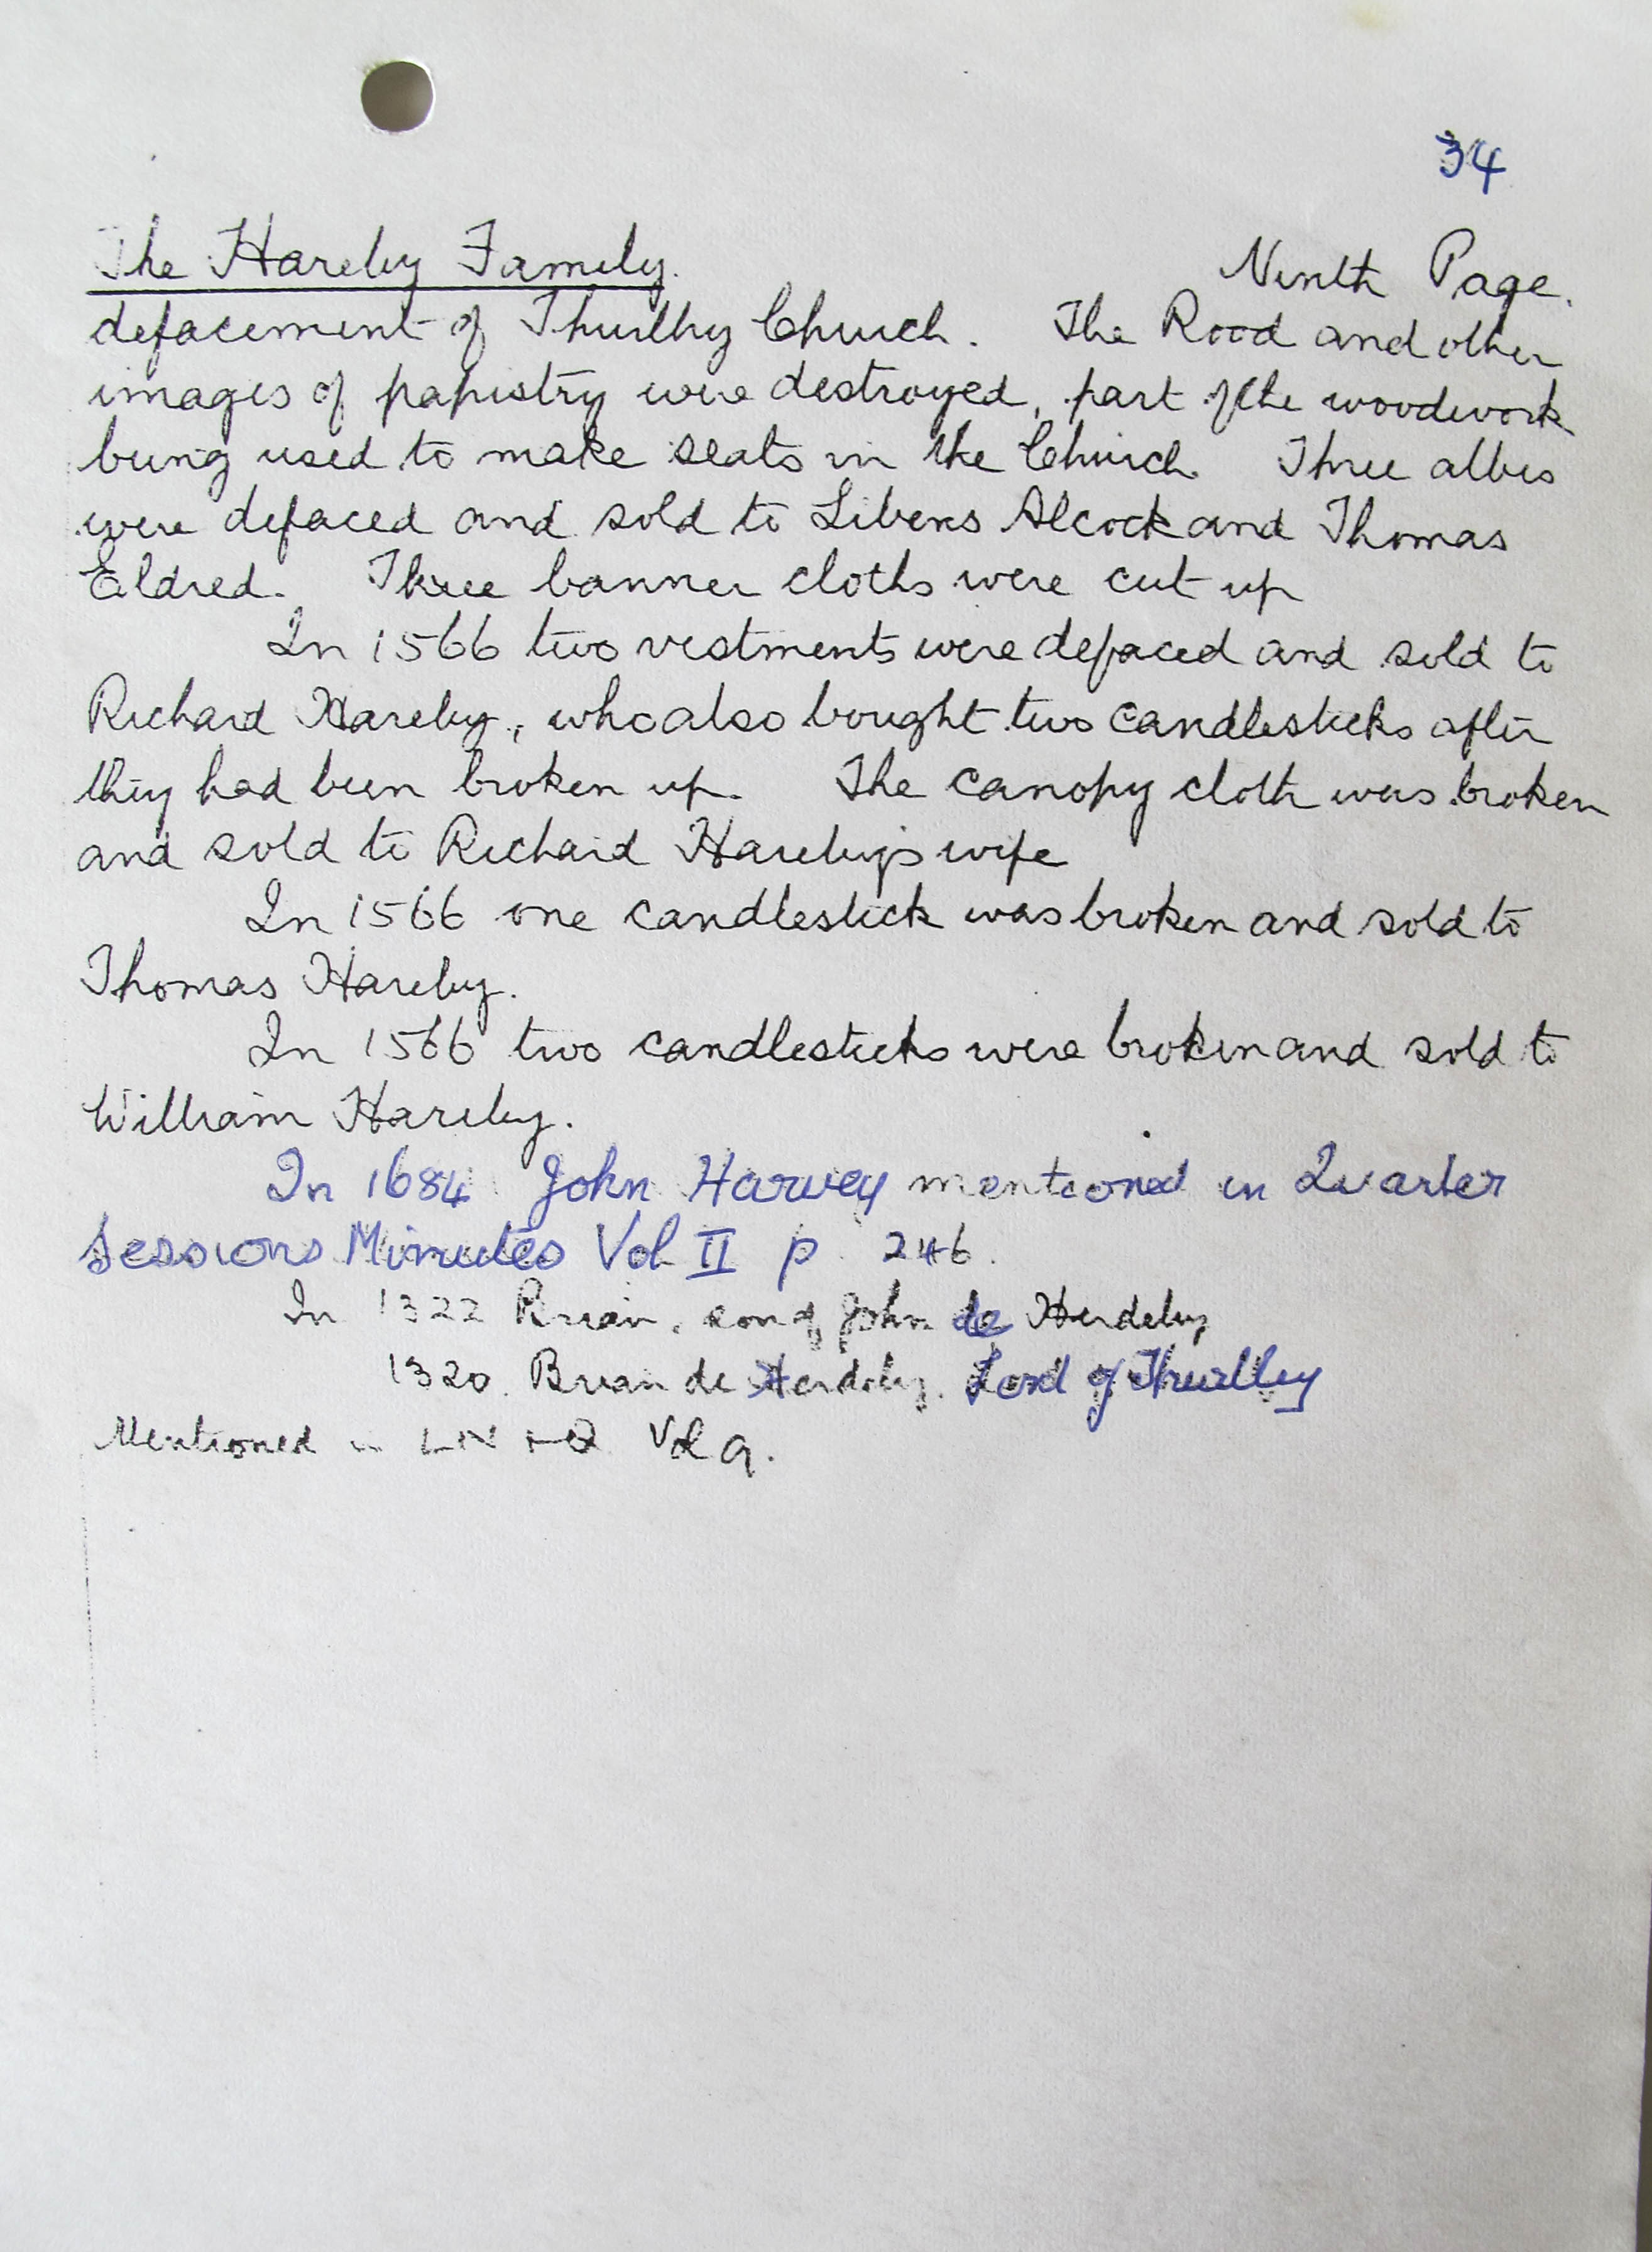 34
The Hareby Family. Ninth Page.
defacement of Thurlby Church. The Rood and other
images of papistry were destroyed, part of the woodwork
being used to make seats in the Church. Three albes
were defaced and sold to Libens Alcock and Thomas
Eldred. Three banner cloths were cut up
In 1566 two vestments were defaced and sold to
Richard Hareby, who also bought two candlesticks after
they had been broken up. The canopy cloth was broken
and sold to Richard Hareby's wife
In 1566 one candlestick was broken and sold to
Thomas Hareby.
In 1566 two candlesticks were broken and sold to
William Hareby.
In 1684 John Harvey mentioned in Quarter
Sessions Minutes Vol II p. 246.
In 1322 Brian, son of John de Herdeby
1320. Brian de Herdeby. Lord of Thurlby
Mentioned in LN & Q Vol 9.